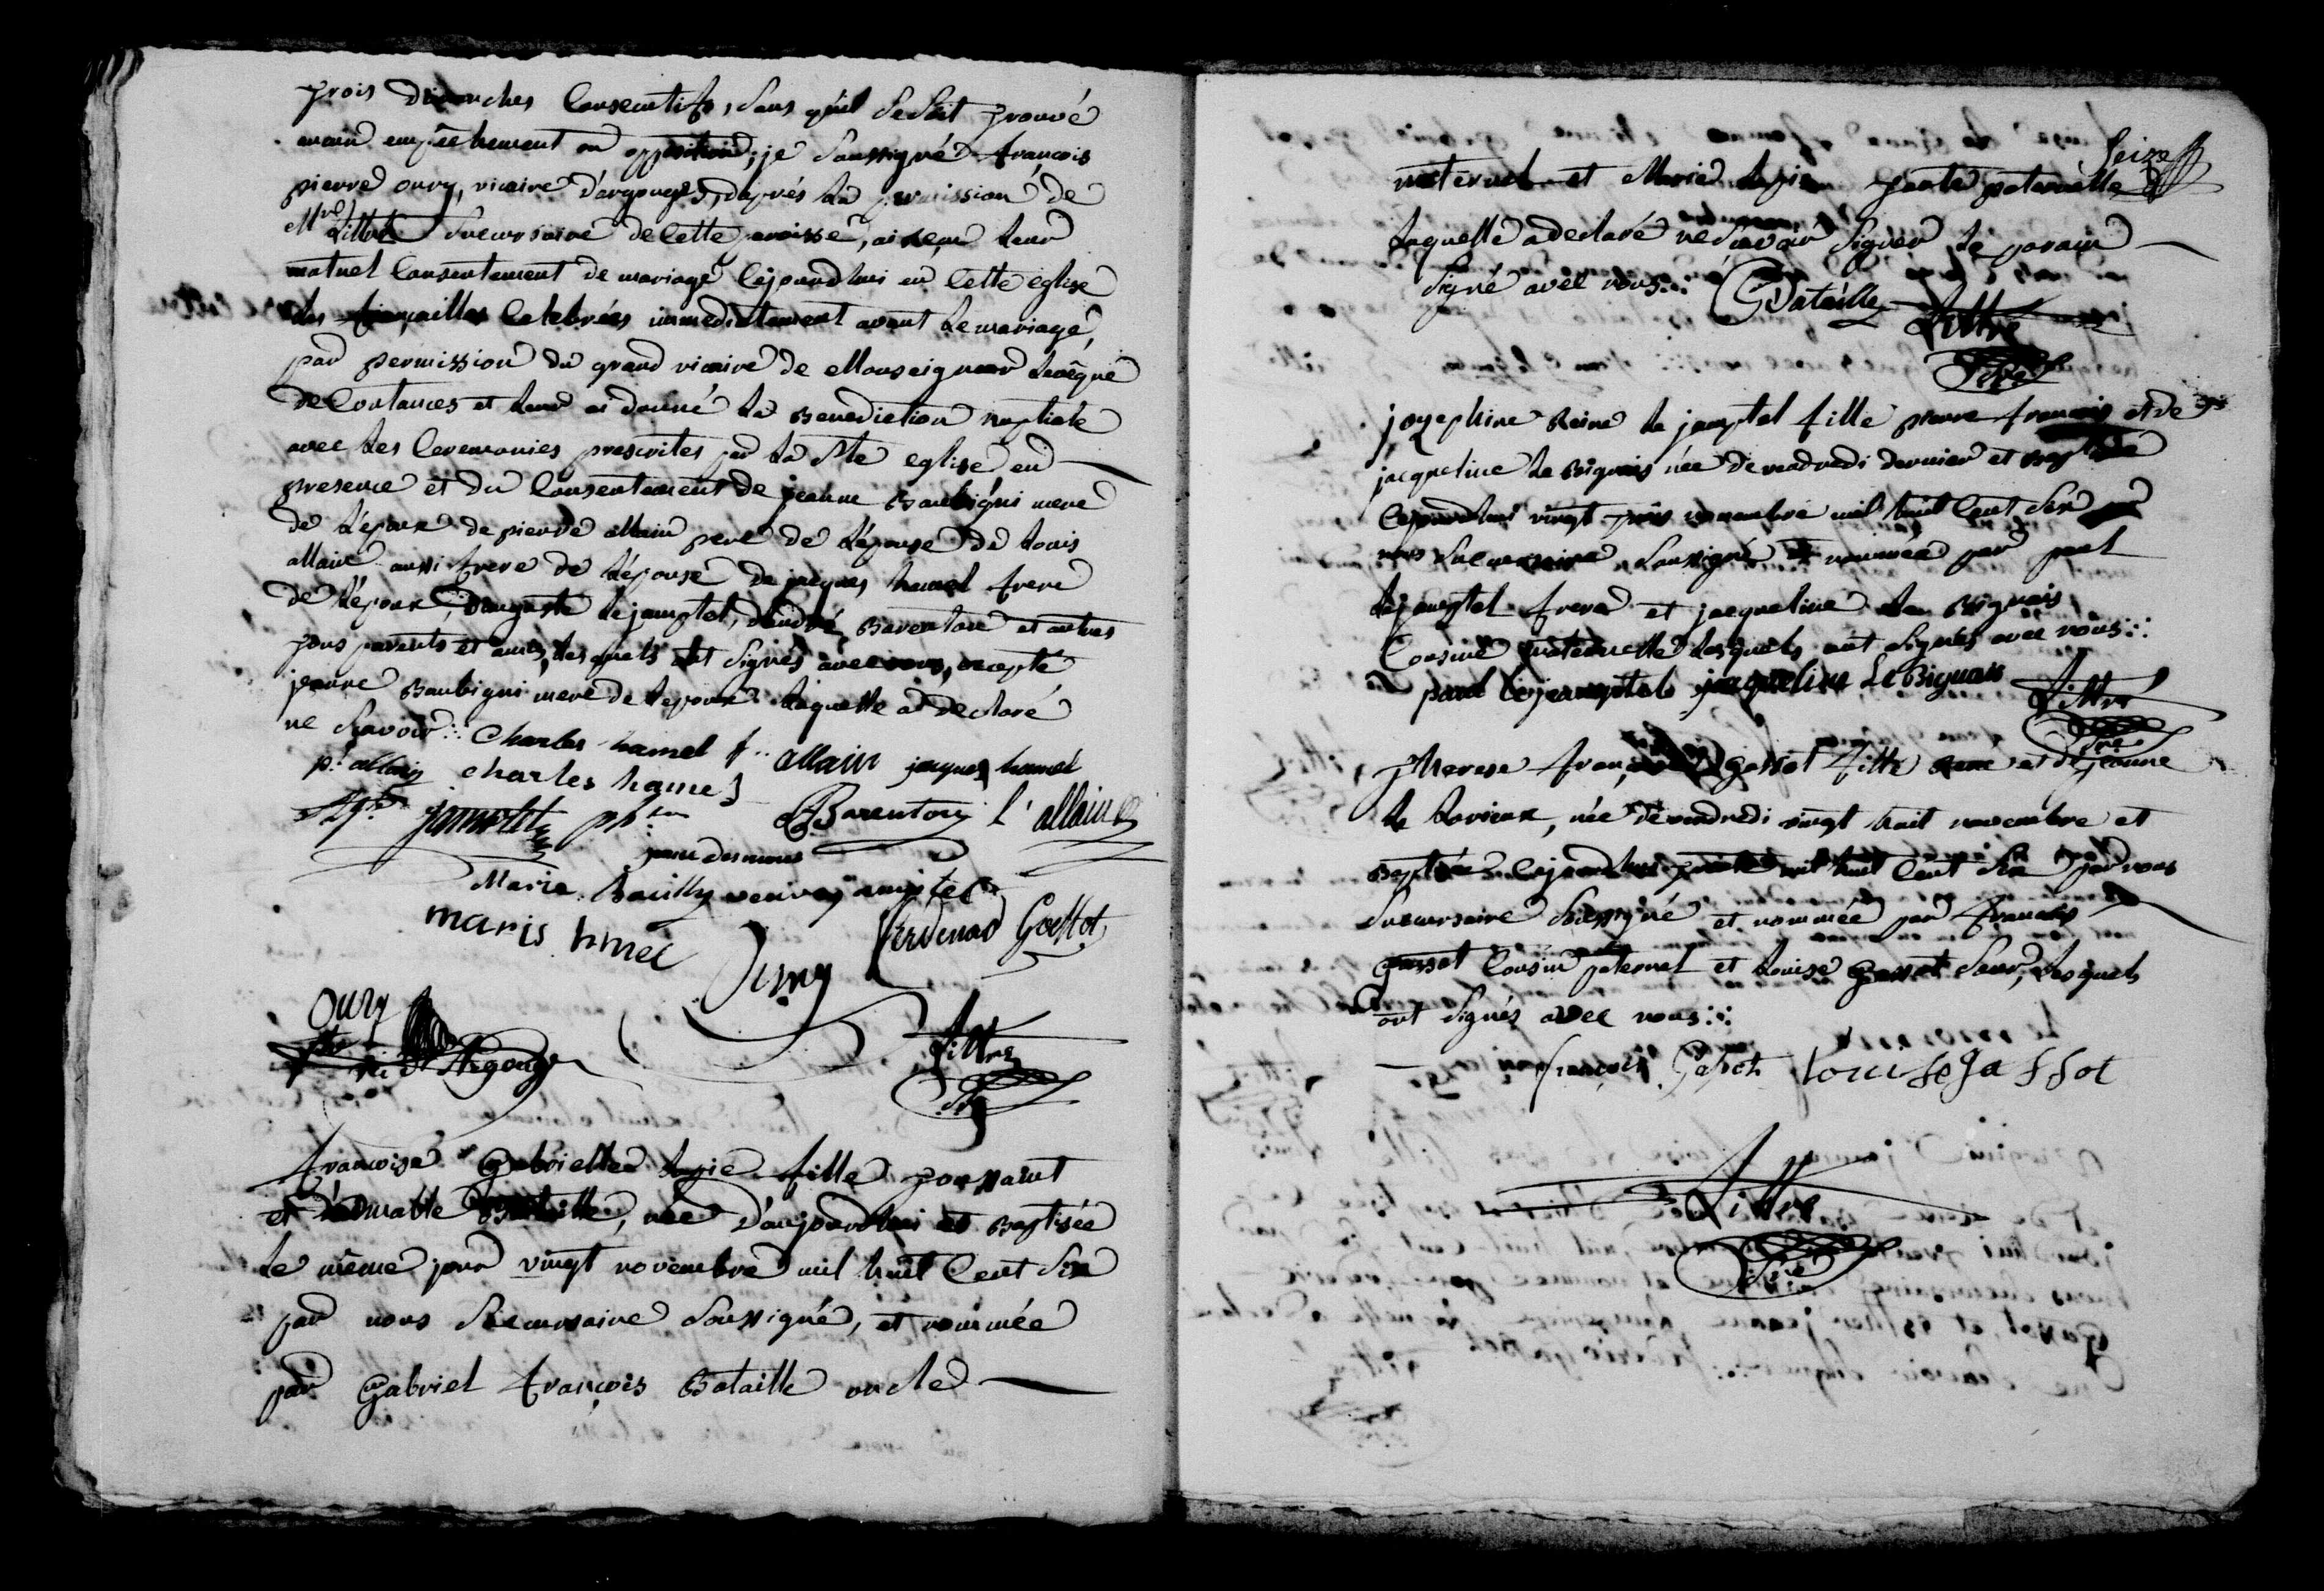 trois dimanches consecutifs, sans qu'il se soit trouvé
aucun empêchement ou opposition; je soussigné françois
pierre oury, vicaire d'argouges, d'après la permission de
Mr Littré succursaire de cette paroisse, ai reçu leur
mutuel consentement de mariage cejourdhui en cette eglise
les fiançailles celebrées immediatement avant le mariage,
par permission du grand vicaire de Monseigneur levêque
de Coutances et leur ai donné la Benediction nuptiale
avec les ceremonies prescrites par la Ste eglise en
presence et du consentement de jeanne Baubigni mere
de l'epoux de pierre allain pere de l'epouse de louis
allain aussi frere de l'epouse de jacques hamel frere
de l'epoux, d'auguste lejamptel, d'andré Barenton et autres
tous parents et amis, lesquels ont signés avec nous, excepté
jeanne Baubigni mere de lepoux laquelle a declaré
ne scavoir. Charles hamel f.. allain jacques hamel
p. allain charles hamel
jamptel Barenton l. allain
Marie Bailly veuve jamptel
maris hmel oury Goffot
oury
vic d'Argouges Littré
Sre
francoise Gabrielle lepie fille toussaint
et d'aimable Bataille, née d'aujourdhui et Baptisée
le même jour vingt novembre mil huit cent dix
par nous succursaire soussigné, et nommée
par Gabriel françois Bataille oncle
Seize
maternel et Marie lepie tante paternelle
laquelle a declaré ne scavoir signer le parain
signé avec nous. G Bataille Littré
Sre
josephine Reine le jamptel fille pierre françois et de
jacqueline le Bignais née de vendredi dernier et baptisée
cejourdhui vingt trois novembre mil huit cent dix par
nous succursaire soussigné et nommée par paul
lejamptel frere et jacqueline le Bignais
Cousine maternelle lesquels ont signés avec nous.
paul lejamptel jacqueline Le Bignais Littré
Sre
Therese françoise gassot fille René et de jeanne
le lorieux, née de vendredi vingt huit novembre et
Baptisée cejourdhui trente mil huit cent dix par nous
succursaire soussigné et nommée par françois
gassot cousin paternel et louise Gassot soeur, lesquels
ont signés avec nous.
françois Gassot louise ga ssot
Littré
Sre